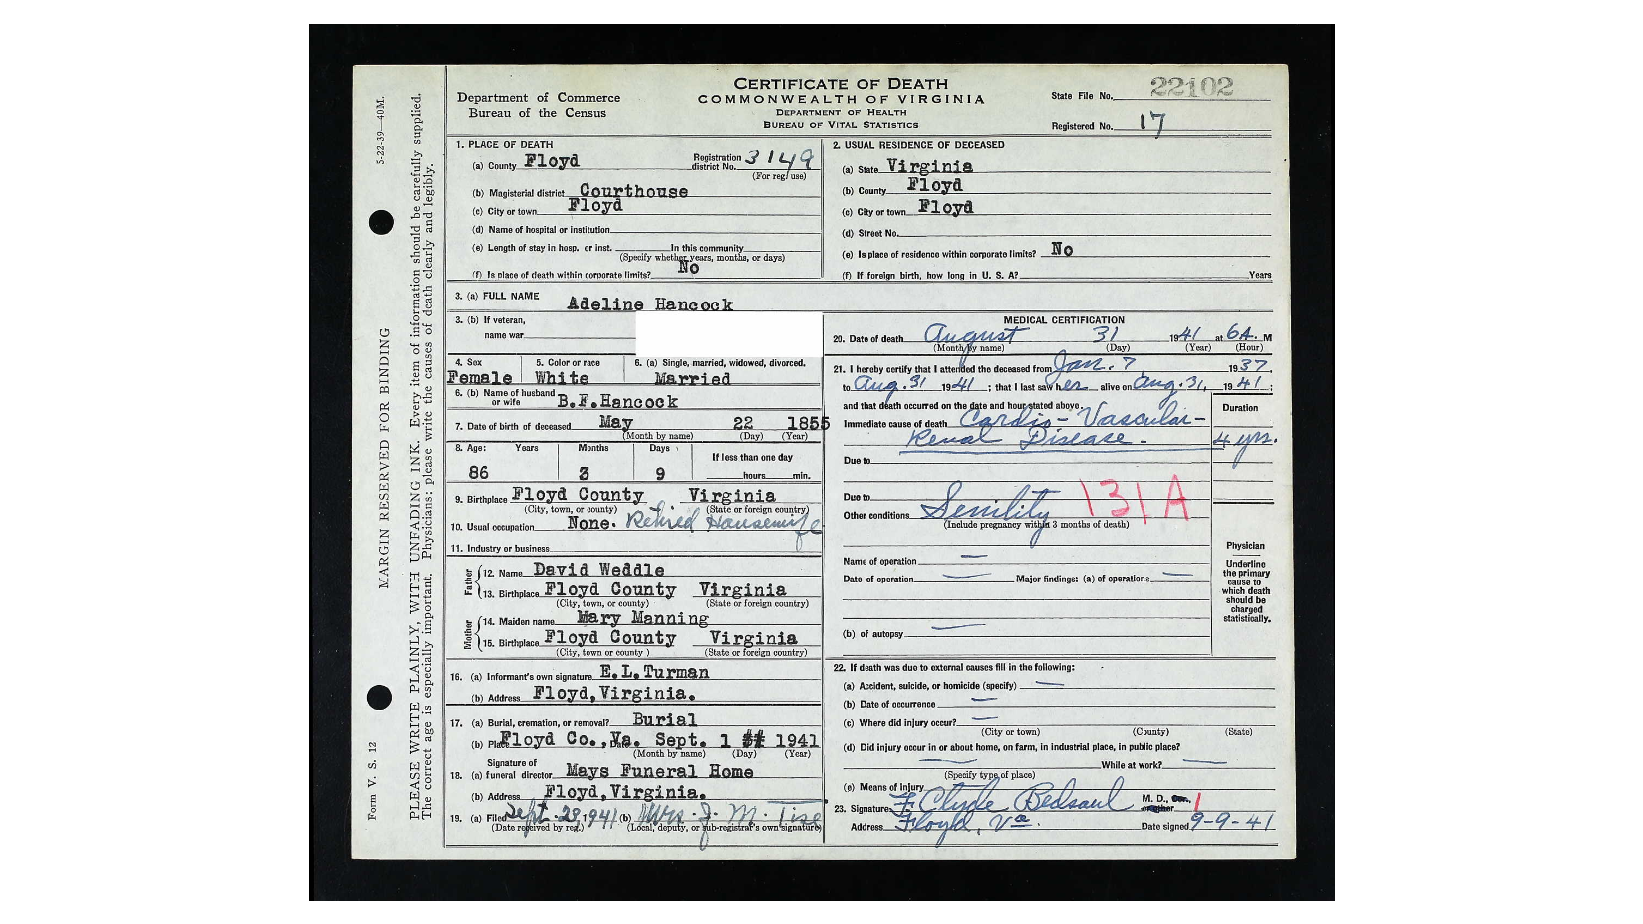 CERTIFICATE OF DEATH
COMMONWEALTH OF VIRGINIA
DEPARTMENT OF HEALTH
BUREAU OF VITAL STATISTICS
Department of Commerce
Bureau of the Census
State File No. 22102
Registered No. 17
5-22-39—40M.
MARGIN RESERVED FOR BINDING
Form V. S. 12
PLEASE WRITE PLAINLY, WITH UNFADING INK. Every item of information should be carefully supplied.
The correct age is especially important. Physicians: please write the causes of death clearly and legibly.
1. PLACE OF DEATH
(a) County Floyd Registration district No. 3149
(For reg. use)
(b) Magisterial district Courthouse
(c) City or town Floyd
(d) Name of hospital or institution
(e) Length of stay in hosp. or inst. In this community
(Specify whether years, months, or days)
(f) Is place of death within corporate limits? No
2. USUAL RESIDENCE OF DECEASED
(a) State Virginia
(b) County Floyd
(c) City or town Floyd
(d) Street No.
(e) Is place of residence within corporate limits? No
(f) If foreign birth, how long in U. S. A? Years
3. (a) FULL NAME Adeline Hancock
3. (b) If veteran,
name war
4. Sex 5. Color or race 6. (a) Single, married, widowed, divorced.
Female White Married
6. (b) Name of husband or wife B.F.Hancock
7. Date of birth of deceased May 22 1855
(Month by name) (Day) (Year)
8. Age: Years Months Days If less than one day
86 3 9 hours min.
9. Birthplace Floyd County Virginia
(City, town, or county) (State or foreign country)
10. Usual occupation None. Retired Housewife
11. Industry or business
Father
12. Name David Weddle
13. Birthplace Floyd County Virginia
(City, town, or county) (State or foreign country)
Mother
14. Maiden name Mary Manning
15. Birthplace Floyd County Virginia
(City, town or county ) (State or foreign country)
16. (a) Informant's own signature E.L.Turman
(b) Address Floyd,Virginia.
17. (a) Burial, cremation, or removal? Burial
(b) Place Floyd Co.,Va. Sept. 1 1941
(Month by name) (Day) (Year)
Signature of
18. (a) funeral director Mays Funeral Home
(b) Address Floyd,Virginia.
19. (a) Filed Sept. 29, 1941 (b) Mrs. J. M. Tise
(Date received by reg.) (Local, deputy, or sub-registrar's own signature)
MEDICAL CERTIFICATION
20. Date of death August 31 1941 at 6A. M
(Month by name) (Day) (Year) (Hour)
21. I hereby certify that I attended the deceased from Jan. 7 1937
to Aug. 31 1941 ; that I last saw her alive on Aug. 31, 1941 ;
and that death occurred on the date and hour stated above.
Duration
Immediate cause of death Cardio-Vascular-
Renal Disease. 4 yrs.
Due to
Due to
131A
Other conditions Senility
(Include pregnancy within 3 months of death)
Name of operation —
Date of operation — Major findings: (a) of operations —
(b) of autopsy —
Physician
Underline
the primary
cause to
which death
should be
charged
statistically.
22. If death was due to external causes fill in the following:
(a) Accident, suicide, or homicide (specify) —
(b) Date of occurrence —
(c) Where did injury occur? —
(City or town) (County) (State)
(d) Did injury occur in or about home, on farm, in industrial place, in public place?
— While at work? —
(Specify type of place)
(e) Means of Injury
23. Signature F. Clyde Bedsaul M. D.,
Address Floyd, Va. Date signed 9-9-41